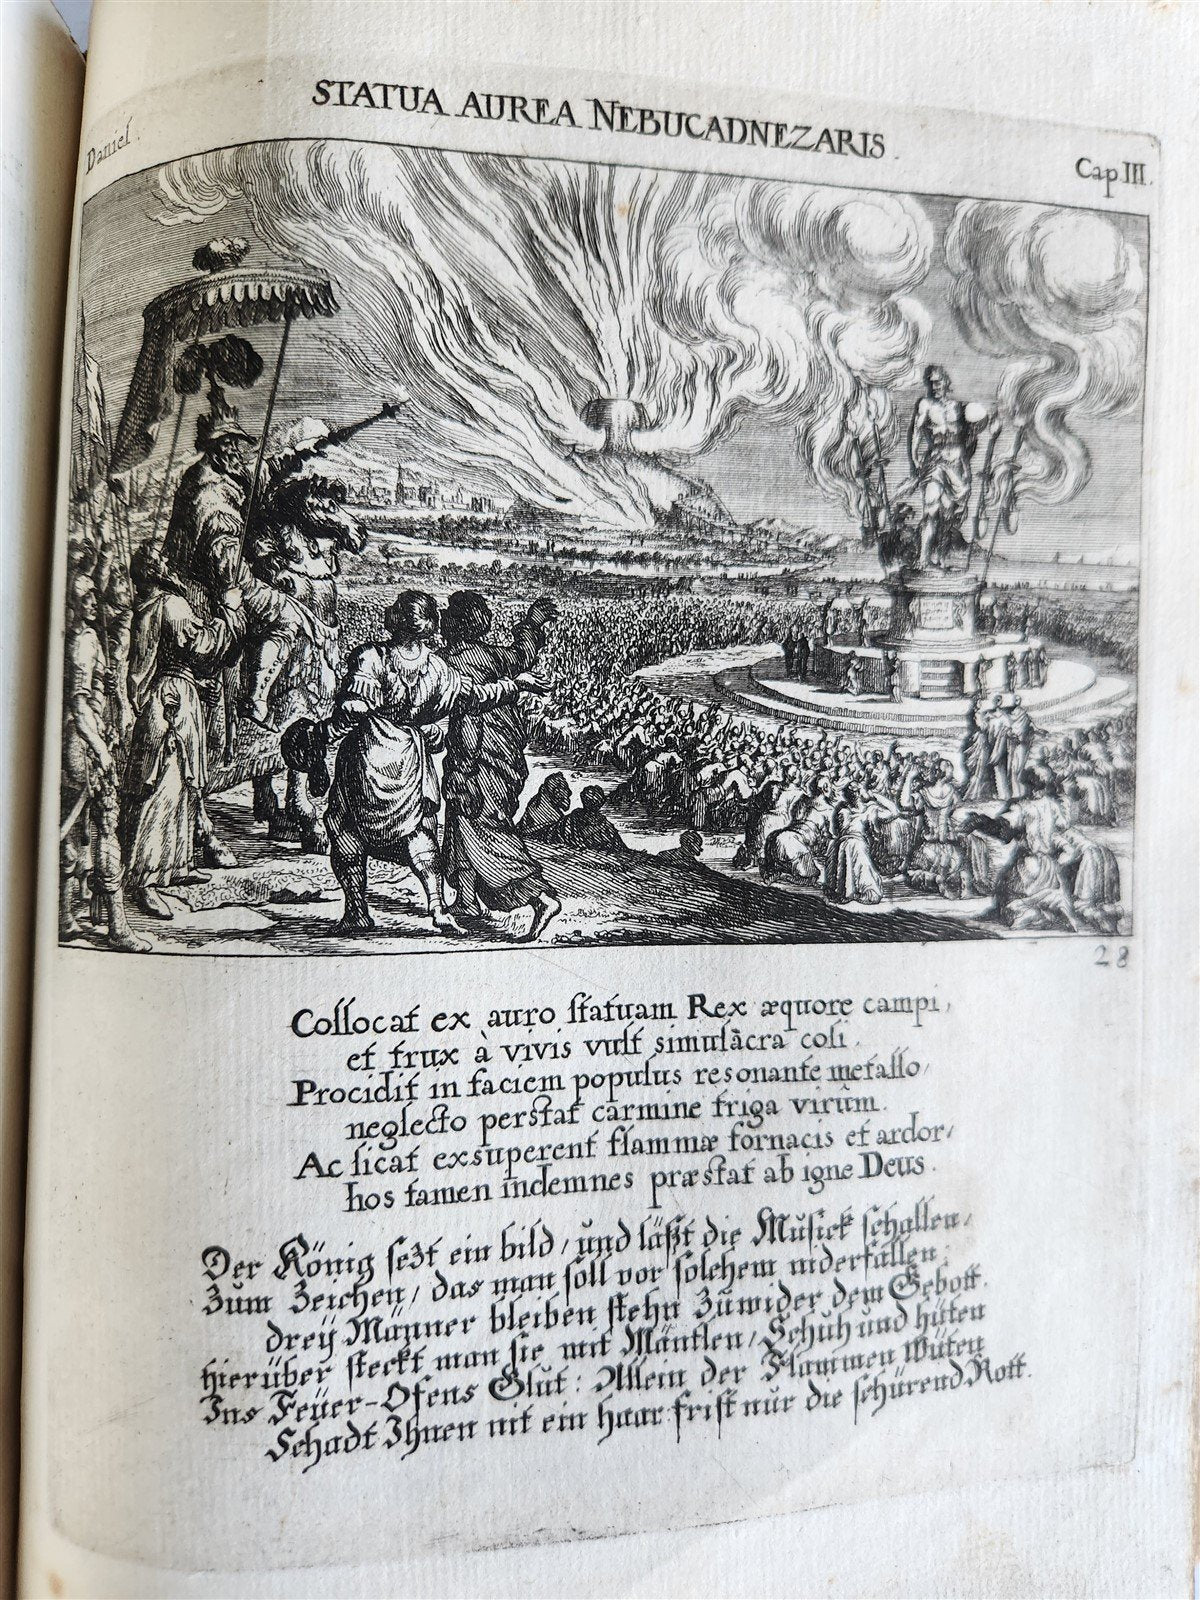 STATUA AUREA NEBUCADNEZARIS.
Daniel.
Cap III.
28
Collocat ex auro statuam Rex æquore campi,
et trux à vivis vult simulàcra coli.
Procidit in faciem populus resonante metallo,
neglecto perstat carmine triga virûm.
Ac licat exsuperent flammæ fornacis et ardor,
hos tamen indemnes præstat ab igne Deus.
Der König sezt ein bild, und läszt die Musick schallen,
Zum Zeichen, das man soll vor solchem niderfallen;
dreÿ Männer bleiben stehn Zuwider dem Gebott.
hierüber steckt man sie mit Mäntlen, Schuh und hüten
Ins Feuer-Ofens Glut: Allein der Flammen wüten
Schadt Ihnen nit ein haar: frist nur die schürend Rott.